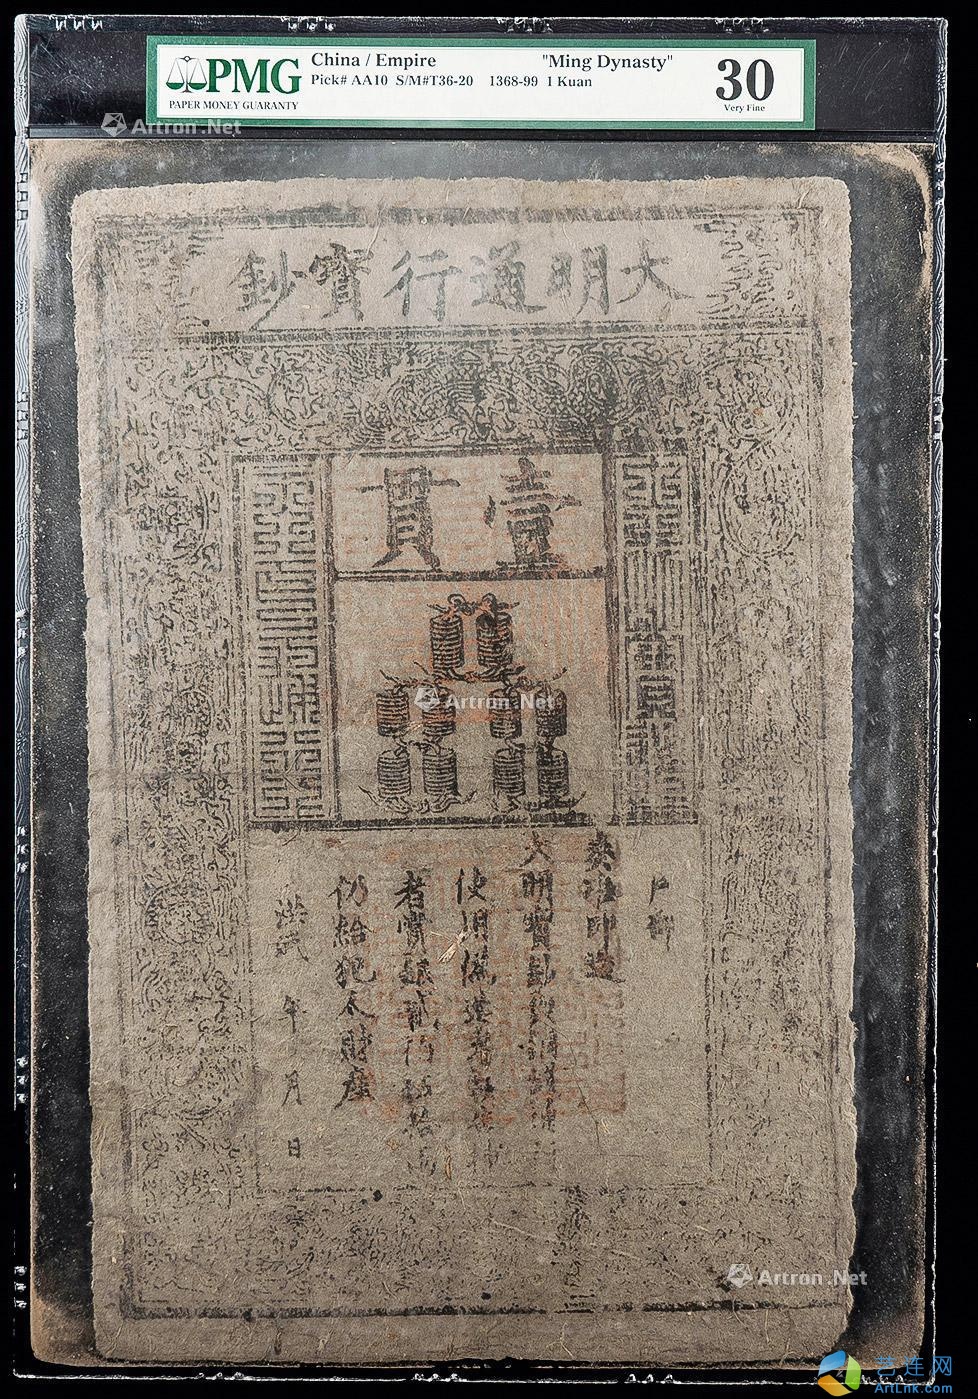 PMG
PAPER MONEY GUARANTY
China / Empire "Ming Dynasty"
Pick# AA10 S/M#T36-20 1368-99 1 Kuan
30
Very Fine
Artron.Net
大明通行寶鈔
壹貫
Artron.Net
户部
奏准印造
大明寶鈔與銅錢通行
使用偽造者斬告捕
者賞銀貳佰伍拾兩
仍給犯人財產
洪武 年 月 日
Artron.Net
艺连网
ArtLnk.com